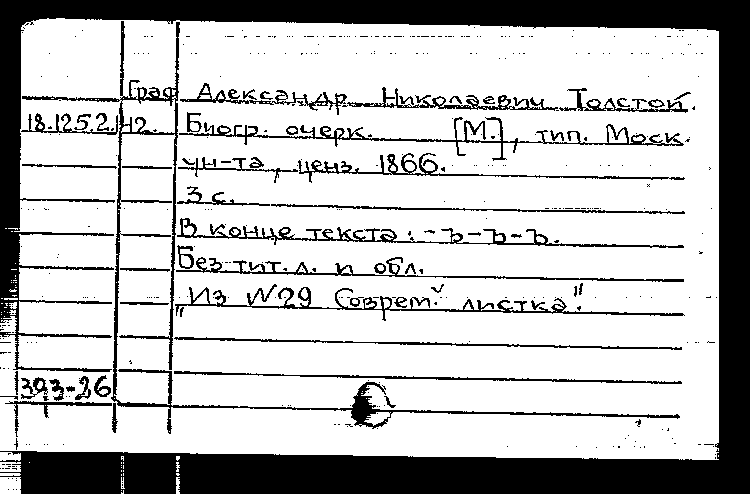 Граф Александр Николаевич Толстой.
18.125.2.142. Биогр. очерк. [М.], тип. Моск.
ун-та, ценз. 1866.
3 с.
В конце текста: -Ъ-Ъ-Ъ.
Без тит. л. и обл.
"Из №29 Соврем. листка".
393-26